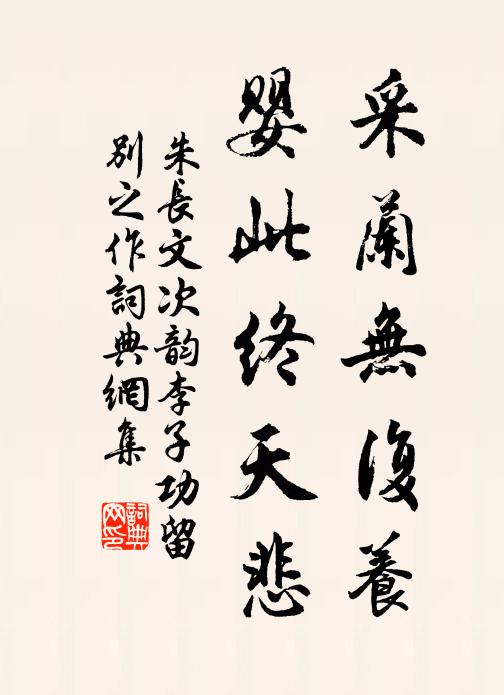 采蘭無復養
嬰此終天悲
朱長文次韵李子功留
別之作詞典網集
詞典網印